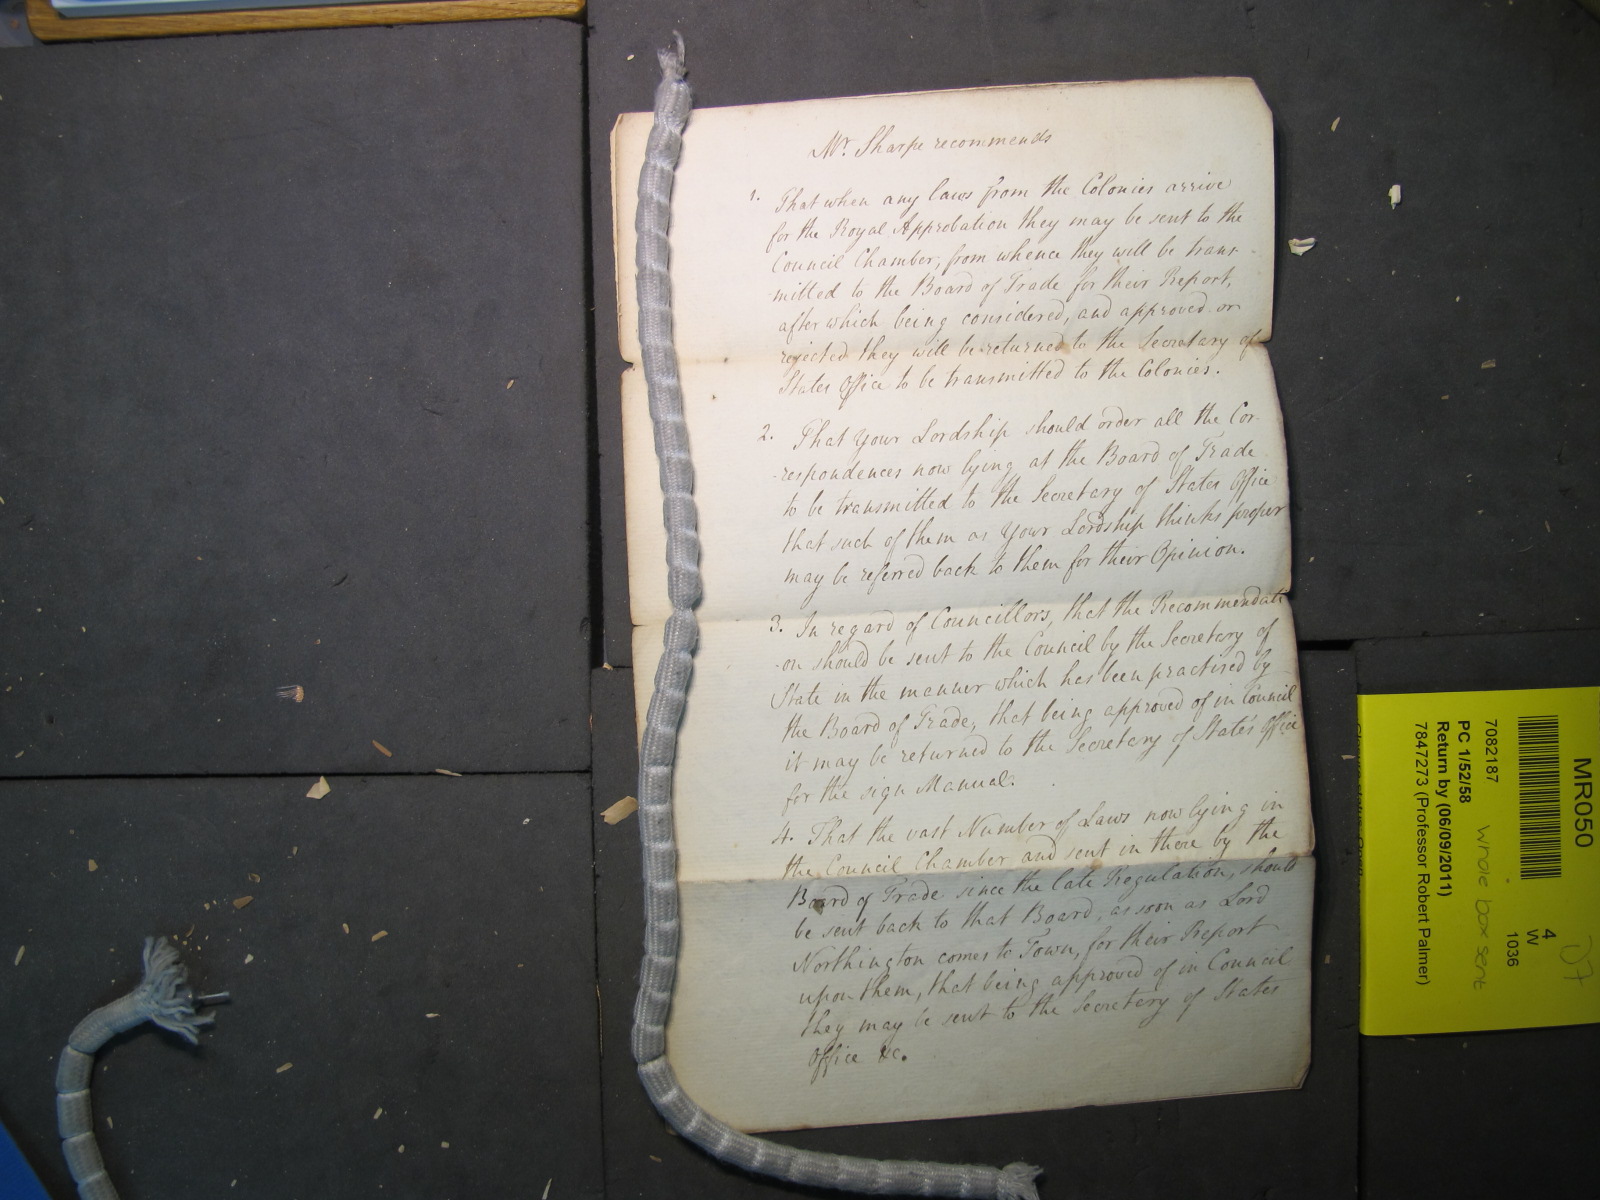 Mr. Sharpe recommends
1. That when any laws from the Colonies arrive
for the Royal Approbation they may be sent to the
Council Chamber, from whence they will be trans-
-mitted to the Board of Trade for their Report,
after which being considered, and approved or
rejected they will be returned to the Secretary of
States Office to be transmitted to the Colonies.
2. That Your Lordship should order all the Cor-
-respondences now lying at the Board of Trade
to be transmitted to the Secretary of States Office
that such of them as Your Lordship thinks proper
may be referred back to them for their Opinion.
3. In regard of Councillors, that the Recommendati
-on should be sent to the Council by the Secretary of
State in the manner which has been practised by
the Board of Trade, that being approved of in Council
it may be returned to the Secretary of State's Office
for the sign Manual.
4. That the vast Number of Laws now lying in
the Council Chamber and sent in there by the
Board of Trade since the late Regulation, should
be sent back to that Board, as soon as Lord
Northington comes to Town, for their Report
upon them, that being approved of in Council
they may be sent to the Secretary of States
Office &c.
MR050
4
W
1036
7082187
whole box sent
PC 1/52/58
Return by (06/09/2011)
7847273 (Professor Robert Palmer)